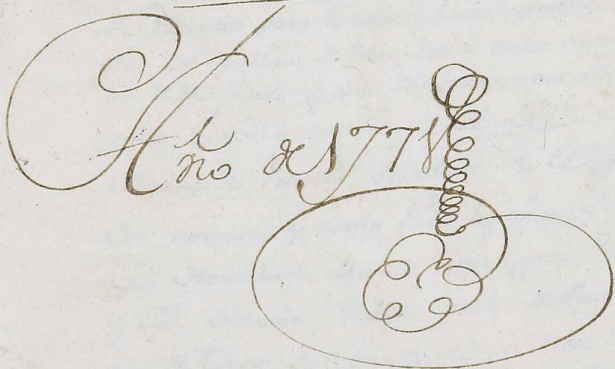 Año de 1771